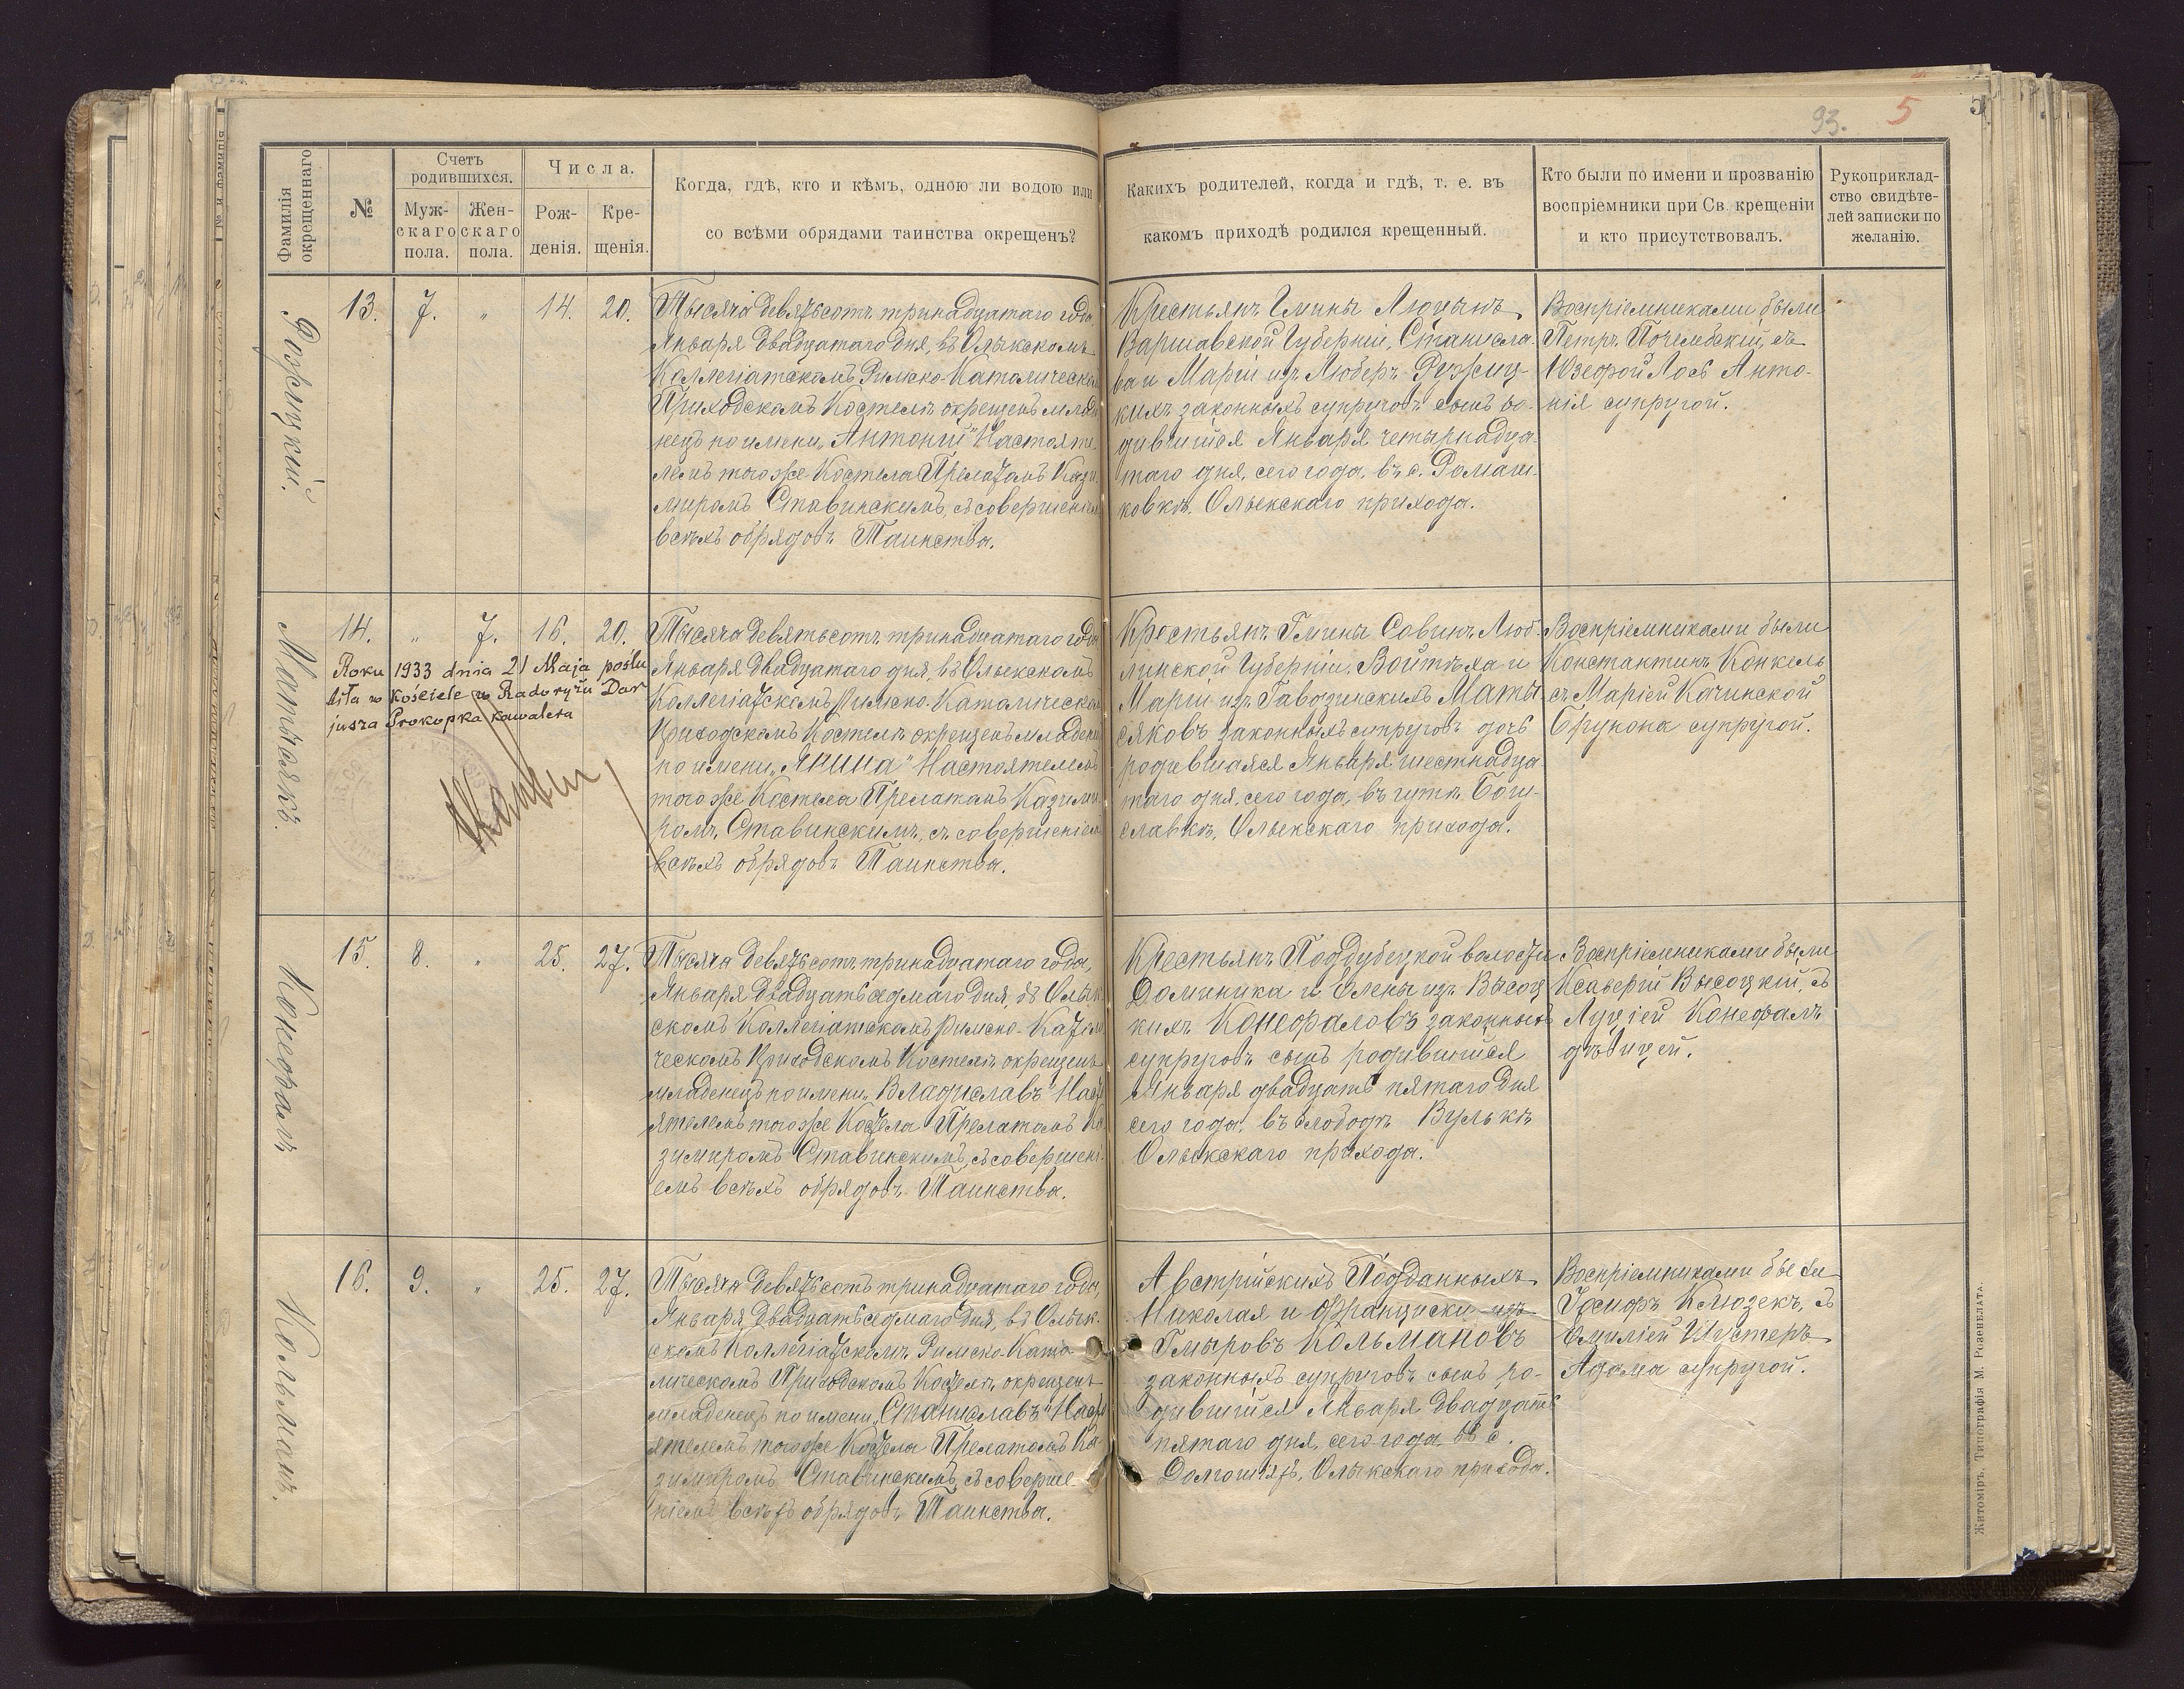 93. 5 5
Фамилія окрещеннаго
№
Счетъ родившихся.
Муж-скаго пола.
Жен-скаго пола.
Числа.
Рож-денія.
Кре-щенія.
Когда, гдѣ, кто и кѣмъ, одною ли водою или
со всѣми обрядами таинства окрещенъ?
Какихъ родителей, когда и гдѣ, т. е. въ
какомъ приходѣ родился крещенный.
Кто были по имени и прозванію
воспріемники при Св. крещеніи
и кто присутствовалъ.
Рукоприклад-
ство свидѣте-
лей записки по
желанію.
13. 7. „ 14. 20.
Тысяча девятьсотъ тринадцатаго года
Января двадцатаго дня, въ Олыкскомъ
Коллегіатскомъ Римско-Католическомъ
Приходскомъ Костелѣ окрещенъ младе
нецъ по имени „Антоній" Настояте
лемъ того же Костела Прелатомъ Кази
миромъ Ставинскимъ, съ совершеніемъ
всѣхъ обрядовъ Таинства.
Крестьянъ Гмины
Варшавской Губерніи, Станисла-
ва и Маріи изъ Люберъ
кихъ законныхъ супруговъ сынъ ро-
дившійся Января четырнадца-
таго дня, сего года, въ с. Ромаш-
ковкѣ, Олыкскаго прихода.
Воспріемниками были
Петръ съ
Юзефой Лось Анто-
нія супругой.
Матысякъ.
14. „ 7. 16. 20.
Roku 1933 dnia 21 Maja poślu
biła w kościele w Radoryżu Dar
jusza Prokopka kawalera
Тысяча девятьсотъ тринадцатаго года
Января двадцатаго дня, въ Олыкскомъ
Коллегіатскомъ Римско-Католическомъ
Приходскомъ Костелѣ окрещенъ младенецъ
по имени „Янина" Настоятелемъ
того же Костела Прелатомъ Казими
ромъ Ставинскимъ, съ совершеніемъ
всѣхъ обрядовъ Таинства.
Крестьянъ Гмины Савинъ Люб-
линской Губерніи, Войтѣха и
Маріи изъ Маты
сяковъ законныхъ супруговъ дочь
родившаяся Января шестнадца
таго дня, сего года, въ
славкѣ, Олыкскаго прихода.
Воспріемниками были
Константинъ Конкель
съ Маріей Качинской
Брунона супругой.
Конефалъ
15. 8. „ 25. 27.
Тысяча девятьсотъ тринадцатаго года,
Января двадцать седмаго дня, въ Олык
скомъ Коллегіатскомъ Римско-Католи
ческомъ Приходскомъ Костелѣ окрещенъ
младенецъ по имени „Владиславъ" Насто
ятелемъ того же Костела Прелатомъ Ка
зимиромъ Ставинскимъ, съ совершені-
емъ всѣхъ обрядовъ Таинства.
Крестьянъ Поддубецкой волости
Доминика и Олены изъ Высоц
кихъ Конефаловъ законныхъ
супруговъ сынъ родившійся
Января двадцать пятаго дня
сего года, въ слободѣ Вулькѣ
Олыкскаго прихода.
Воспріемниками были
Ксаверій Высоцкій, съ
Луціей Конефалъ
дѣвицей.
Кольманъ.
16. 9. „ 25. 27.
Тысяча девятьсотъ тринадцатаго года,
Января двадцать седмаго дня, въ Олык-
скомъ Коллегіатскомъ Римско-Като-
лическомъ Приходскомъ Костелѣ окрещенъ
младенецъ по имени „Станиславъ" Насто
ятелемъ того же Костела Прелатомъ Ка
зимиромъ Ставинскимъ, съ соверше-
ніемъ всѣхъ обрядовъ Таинства.
Австрійскихъ Подданныхъ
Николая и Франциски изъ
Гмыровъ Кольмановъ
законныхъ супруговъ сынъ ро-
дившійся Января двадцать
пятаго дня, сего года, въ с.
Долгошіяхъ, Олыкскаго прихода.
Воспріемниками были
Іосифъ Клюзекъ, съ
Эмиліей Шустеръ
Адама супругой.
Житоміръ, Типографія М. Розенблата.